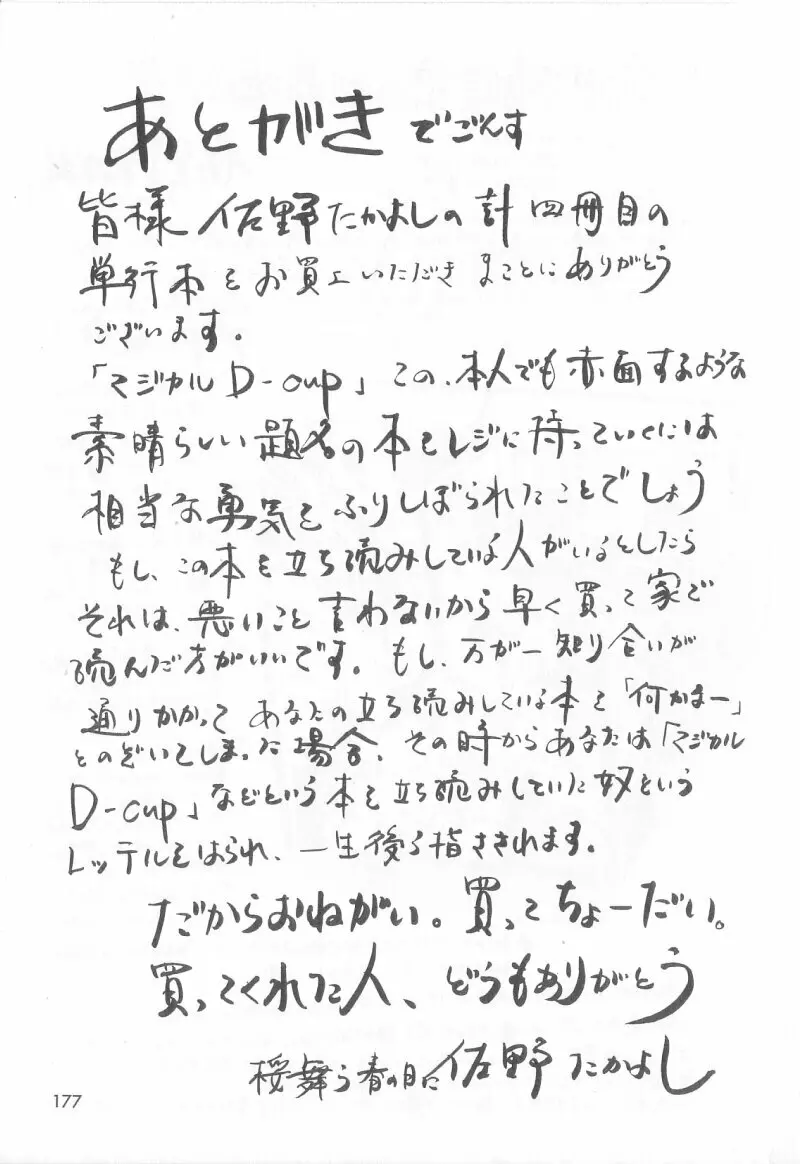 あとがき でごんす
皆様 佐野たかよしの計四冊目の
単行本をお買上いただき まことにありがとう
ございます。
「マジカル D-cup」この、本人でも赤面するような
素晴らしい題名の本をレジに持っていくには
相当な勇気をふりしぼられたことでしょう
もし、この本を立ち読みしている人がいるとしたら
それは、悪いこと言わないから早く買って家で
読んだ方がいいです。もし、万が一知り合いが
通りかかって あなたの立ち読みしている本を「何かなー」
とのぞいてしまった場合、その時からあなたは「マジカル
D-cup」などという本を立ち読みしていた奴という
レッテルをはられ、一生後ろ指さされます。
だからおねがい。買ってちょーだい。
買ってくれた人、どうもありがとう
桜舞う春の日に 佐野たかよし
177